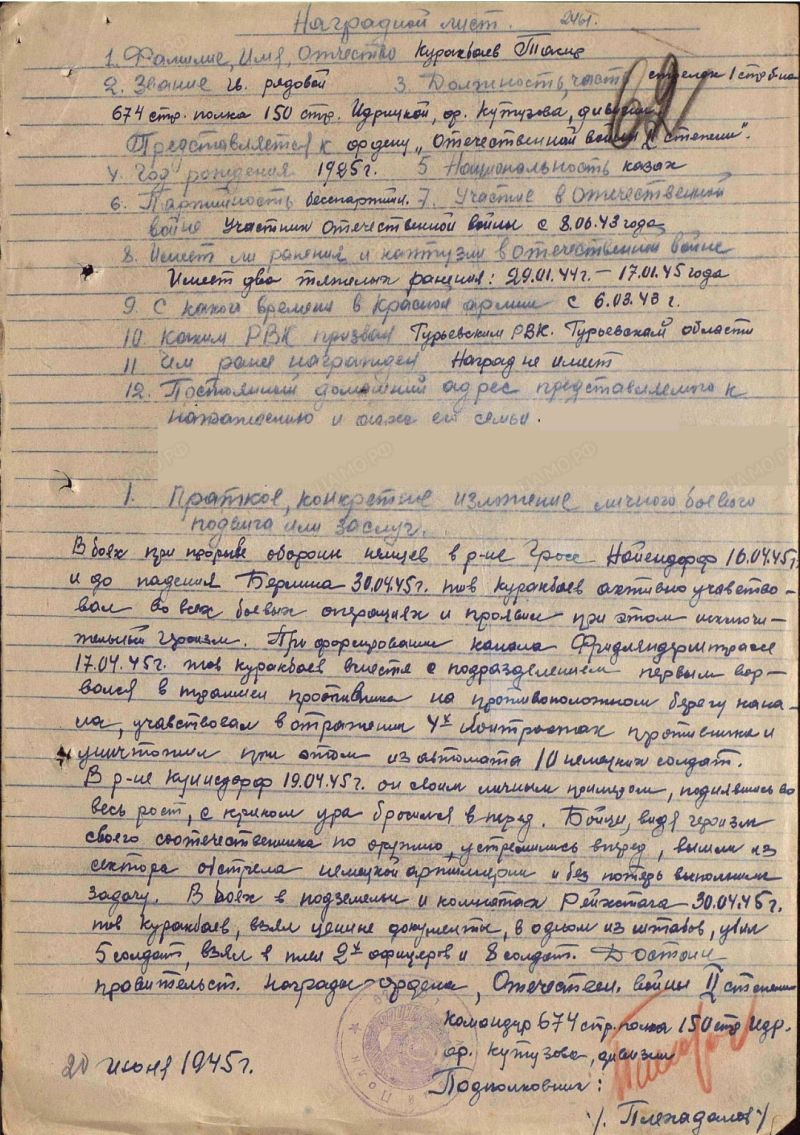 Наградной лист.
1. Фамилие, Имя, Отчество Куракбаев
2. Звание гв. рядовой 3. Должность, часть стрелок 1 стр б-на
674 стр. полка 150 стр. Идрицкой, ор. Кутузова, дивизии
Представляется к ордену „Отечественной войны II степени".
4. Год рождения 1925 г. 5. Национальность казах
6. Партийность беспартийн. 7. Участие в отечественной
войне Участник отечественной войны с 8.06.43 года
8. Имеет ли ранения и контузии в отечественной войне
Имеет два тяжелых ранения: 29.01.44 г. – 17.01.45 года
9. С какого времени в Красной армии с 6.03.43 г.
10. Каким РВК призван Гурьевским РВК. Гурьевской области
11 Чем ранее награжден Наград не имеет
12. Постоянный домашний адрес представляемого к
награждению и адрес его семьи.
1. Краткое, конкретное изложение личного боевого
подвига или заслуг.
В боях при прорыве обороны немцев в р-не Гросс Нойендорф 16.04.45 г.
и до падения Берлина 30.04.45 г. тов Куракбаев активно учавство-
вал во всех боевых операциях и проявил при этом исключи-
тельный героизм. При форсировании канала Фридлендерштрасе
17.04.45 г. тов Куракбаев вместе с подразделением первым вор-
вался в траншеи противника на противоположном берегу кана-
ла, учавствовал в отражении 4х контратак противника и
уничтожил при этом из автомата 10 немецких солдат.
В р-не Кунисдорф 19.04.45 г. он своим личным примером, поднявшись во
весь рост, с криком ура бросился вперед. Бойцы, видя героизм
своего соотечественника по оружию, устремились вперед, вышли из
сектора обстрела немецкой артиллерии и без потерь выполнили
задачу. В боях в подземельи и комнатах Рейхстага 30.04.45 г.
тов Куракбаев, взял ценные документы, в одном из штабов, убил
5 солдат, взял в плен 2х офицеров и 8 солдат. Достоин
правительст. награды ордена, Отечествен. войны II степени
Командир 674 стр. полка 150 стр Идр.
ор. Кутузова, дивизии
20 июня 1945 г.
Подполковник:
/. Плеходанов /